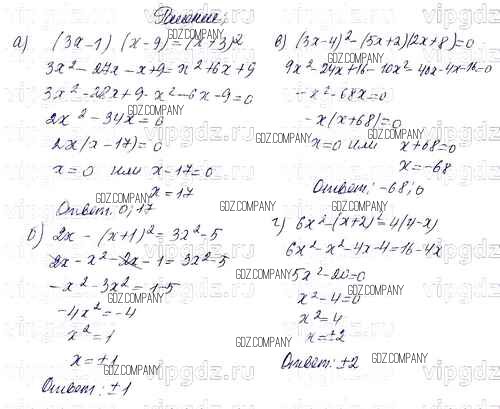 Решение:
а) (3x-1)(x-9)=(x+3)²
3x²-27x-x+9=x²+6x+9
3x²-28x+9-x²-6x-9=0
2x²-34x=0
2x(x-17)=0
x=0 или x-17=0
x=17
Ответ: 0; 17
б) 2x-(x+1)²=3x²-5
2x-x²-2x-1=3x²-5
-x²-3x²=1-5
-4x²=-4
x²=1
x=±1
Ответ: ±1
в) (3x-4)²-(5x+2)(2x+8)=0
9x²-24x+16-10x²-40x-4x-16=0
-x²-68x=0
-x(x+68)=0
x=0 или x+68=0
x=-68
Ответ: -68; 0
г) 6x²-(x+2)²=4(4-x)
6x²-x²-4x-4=16-4x
5x²-20=0
x²-4=0
x²=4
x=±2
Ответ: ±2
GDZ.COMPANY
vipgdz.ru